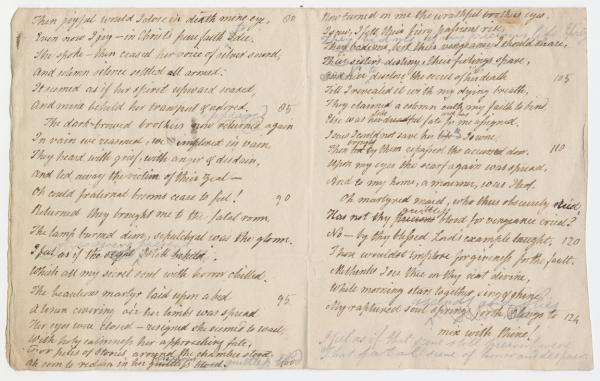 Then joyful would I close in death mine eye, 80
Even now I joy – in Christ's pure faith I die.
She spoke – then ceased her voice of silver sound,
And solemn silence settled all around:
It seemed as if her spirit upward soared,
And mine beheld her transport & adored. 85
The dark-browed brothers now returned again
In vain we reasoned, we implored in vain
They heard with grief, with anger & disdain,
And led away the victim of their zeal –
Oh could fraternal bosoms cease to feel! 90
Returned they brought me to the fatal room
The lamp burned dim, sepulchral was the gloom.
I feel as if the sight I still beheld,
Which all my secret soul with horror chilled.
The beauteous martyr laid upon a bed 95
A lawn covering o'er her limbs was spread
Her eyes were closed – resigned she seemed to wait,
With holy calmness her approaching fate,
Four piles of stories around the chamber stood
As soon to redden in her guiltless blood.
Now turned on me the wrathful brothers' eyes.
I saw, I felt their fury passions rise,
They bade me, lest their vengeance I should share,
Their sister's destiny, their feelings spare,
disclose the secret of his death 105
Till I revealed it with my dying breath,
They claimed a solemn oath my faith to bind
Else was her fate for me assigned.
I saw I could not save her life I swore,
Then by them repassed the accursed door. 110
Upon my eyes the scarf again was spread,
And to my home, a mourner, was I led.
Oh martyred maid, who thus obscurely died,
Has not thy guiltless blood for vengeance cried?
No – by thy blessed Lord's example taught, 120
Thou wouldst implore forgiveness for the fault.
Methinks I see thee in thy seat divine,
While morning stars together sing & shine
My raptured soul springs forth, & longs to 124
mix with thine!